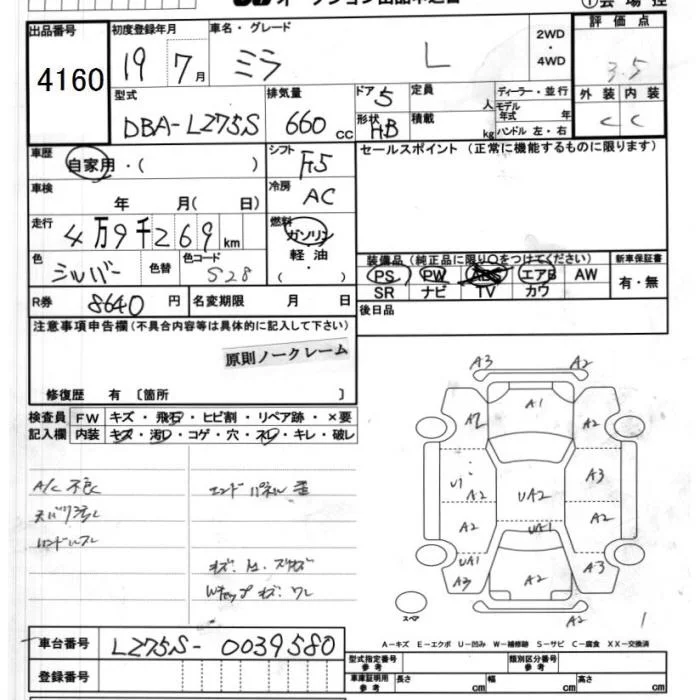 出品番号
4160
初度登録年月
19 7月
車名・グレード
ミラ L
2WD
・
4WD
評価点
3.5
型式
DBA-L275S
排気量
660 cc
ドア 5
定員
人
ディーラー・並行
形状 HB
積載
kg
モデル年式
年
ハンドル 左・右
外装 内装
C C
車歴
自家用・( )
シフト
F5
セールスポイント (正常に機能するものに限ります)
車検
年 月( 日)
冷房
AC
走行
4万9千269km
燃料
ガソリン
軽油
・
色
シルバー
色替
色コード
S28
装備品(純正品に限り○をつけてください)
新車保証書
PS PW ABS エアB AW
有・無
SR ナビ TV カワ
R券
8640 円
名変期限 月 日
後日品
注意事項申告欄(不具合内容等は具体的に記入して下さい)
原則ノークレーム
修復歴 有 〔箇所 〕
検査員
記入欄
FW キズ・飛石・ヒビ割・リペア跡・×要
内装 キズ・汚レ・コゲ・穴・スレ・キレ・破レ
A/C不良
エンドパネル歪
天バリ汚レ
ハンドルスレ
Wキャップ キズ・ワレ
A3 A2
A1
A2 A2
U1 A2 UA2 A3
A2 UA1 A2
UA1 A3 A2 A3
A2
スペア
1
車台番号
L275S-0039580
登録番号
A-キズ E-エクボ U-凹み W-補修跡 S-サビ C-腐食 XX-交換済
型式指定番号
参考
類別区分番号
参考
車庫証明用
参考
長さ cm
幅 cm
高さ cm